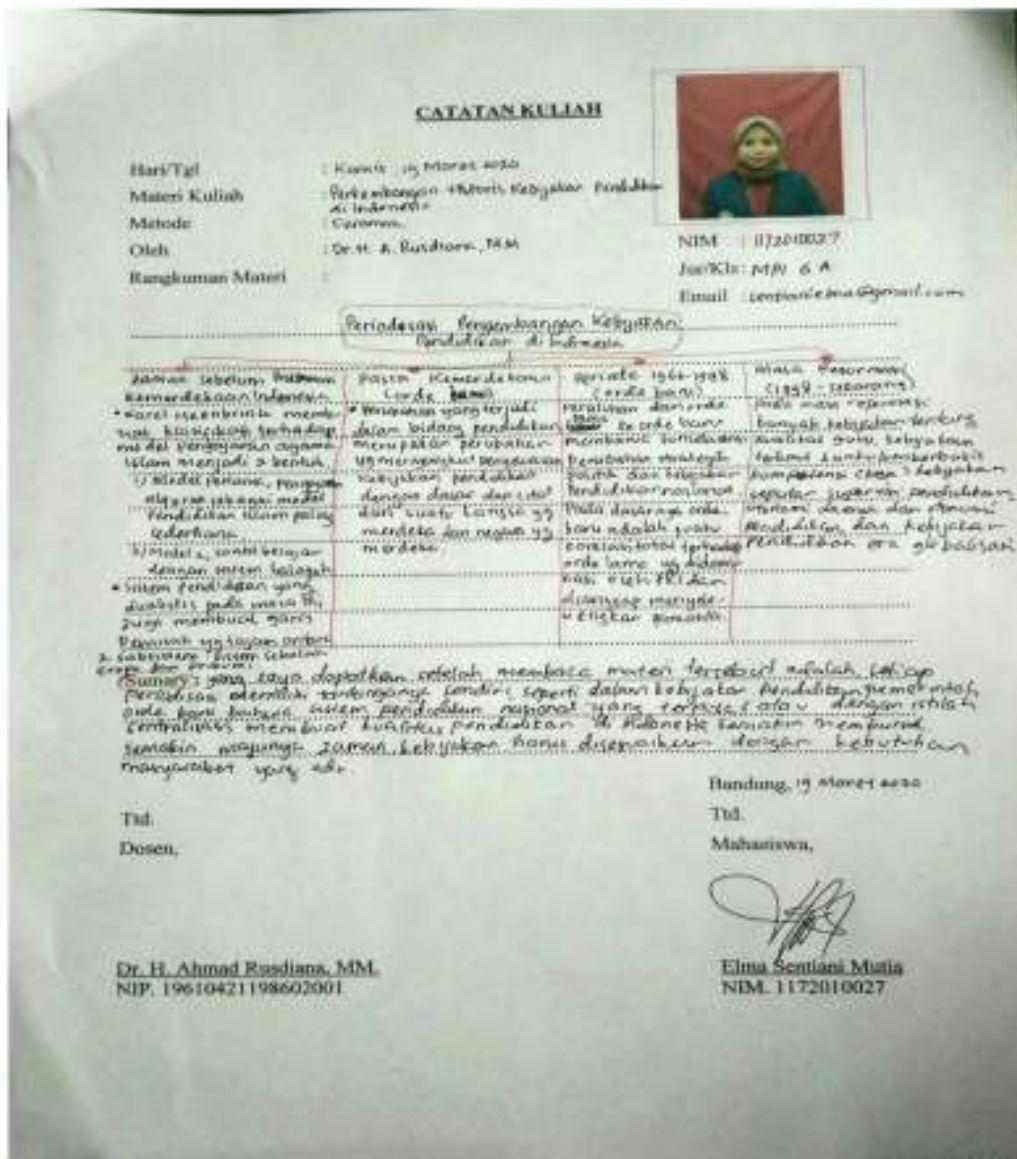 CATATAN KULIAH
Hari/Tgl : Kamis, 19 Maret 2020
Materi Kuliah : Perkembangan Historis Kebijakan Pendidikan
di Indonesia
Metode : Ceramah
Oleh : Dr. H. A. Rusdiana, MM
Rangkuman Materi :
NIM : 1172010027
Jur/Kls: MPI 6 A
Email : sentianielma@gmail.com
Periodesasi Pengembangan Kebijakan
Pendidikan di Indonesia
Zaman sebelum
Kemerdekaan Indonesia
• Karel Steenbrink mem
klasifikasi terhadap
model pengajaran agama
Islam menjadi 2 bentuk
1) Model pertama, pengajian
alquran sebagai model
Pendidikan Islam paling
sederhana
2) Model 2, santri belajar
dengan sistem halaqah
• Sistem Pendidikan yang
dualistis pada masa
membuat garis
Pemisah yg tajam antara
2 subsistem: sistem sekolah
Pasca Kemerdekaan
(orde lama)
• Perubahan yang terjadi
dalam bidang pendidikan
merupakan perubahan
yg menyangkut penyesuaian
kebijakan pendidikan
dengan dasar dan cita2
dari suatu bangsa yg
merdeka dan negara yg
merdeka
Periode 1966-1998
(orde baru)
Peralihan dari orde
lama ke orde baru
membawa
perubahan strategis
politik dan kebijakan
Pendidikan nasional.
Pada dasarnya orde
baru adalah suatu
koreksi total terhadap
orde lama yg didomi
nasi oleh PKI dan
dianggap menyele
wengkan Pancasila
Masa Reformasi
(1998 - sekarang)
Pada masa reformasi
banyak kebijakan tentang
kualitas guru, kebijakan
terkait kurikulum berbasis
kompetensi
seputar pendidikan,
otonomi daerah dan otonomi
pendidikan, dan kebijakan
Pendidikan era globalisasi
Sumary: yang saya dapatkan setelah membaca materi tersebut adalah setiap
periodisasi memiliki tantangannya sendiri seperti dalam kebijakan Pendidikan pemerintah
orde baru bahwa sistem pendidikan nasional yang terpusat atau dengan istilah
sentralisasi membuat kualitas pendidikan di Indonesia semakin memburuk
semakin majunya zaman kebijakan harus disesuaikan dengan kebutuhan
masyarakat yang ada.
Bandung, 19 Maret 2020
Ttd.
Dosen,
Ttd.
Mahasiswa,
Dr. H. Ahmad Rusdiana, MM.
NIP. 19610421198602001
Elma Sentiani Mutia
NIM. 1172010027